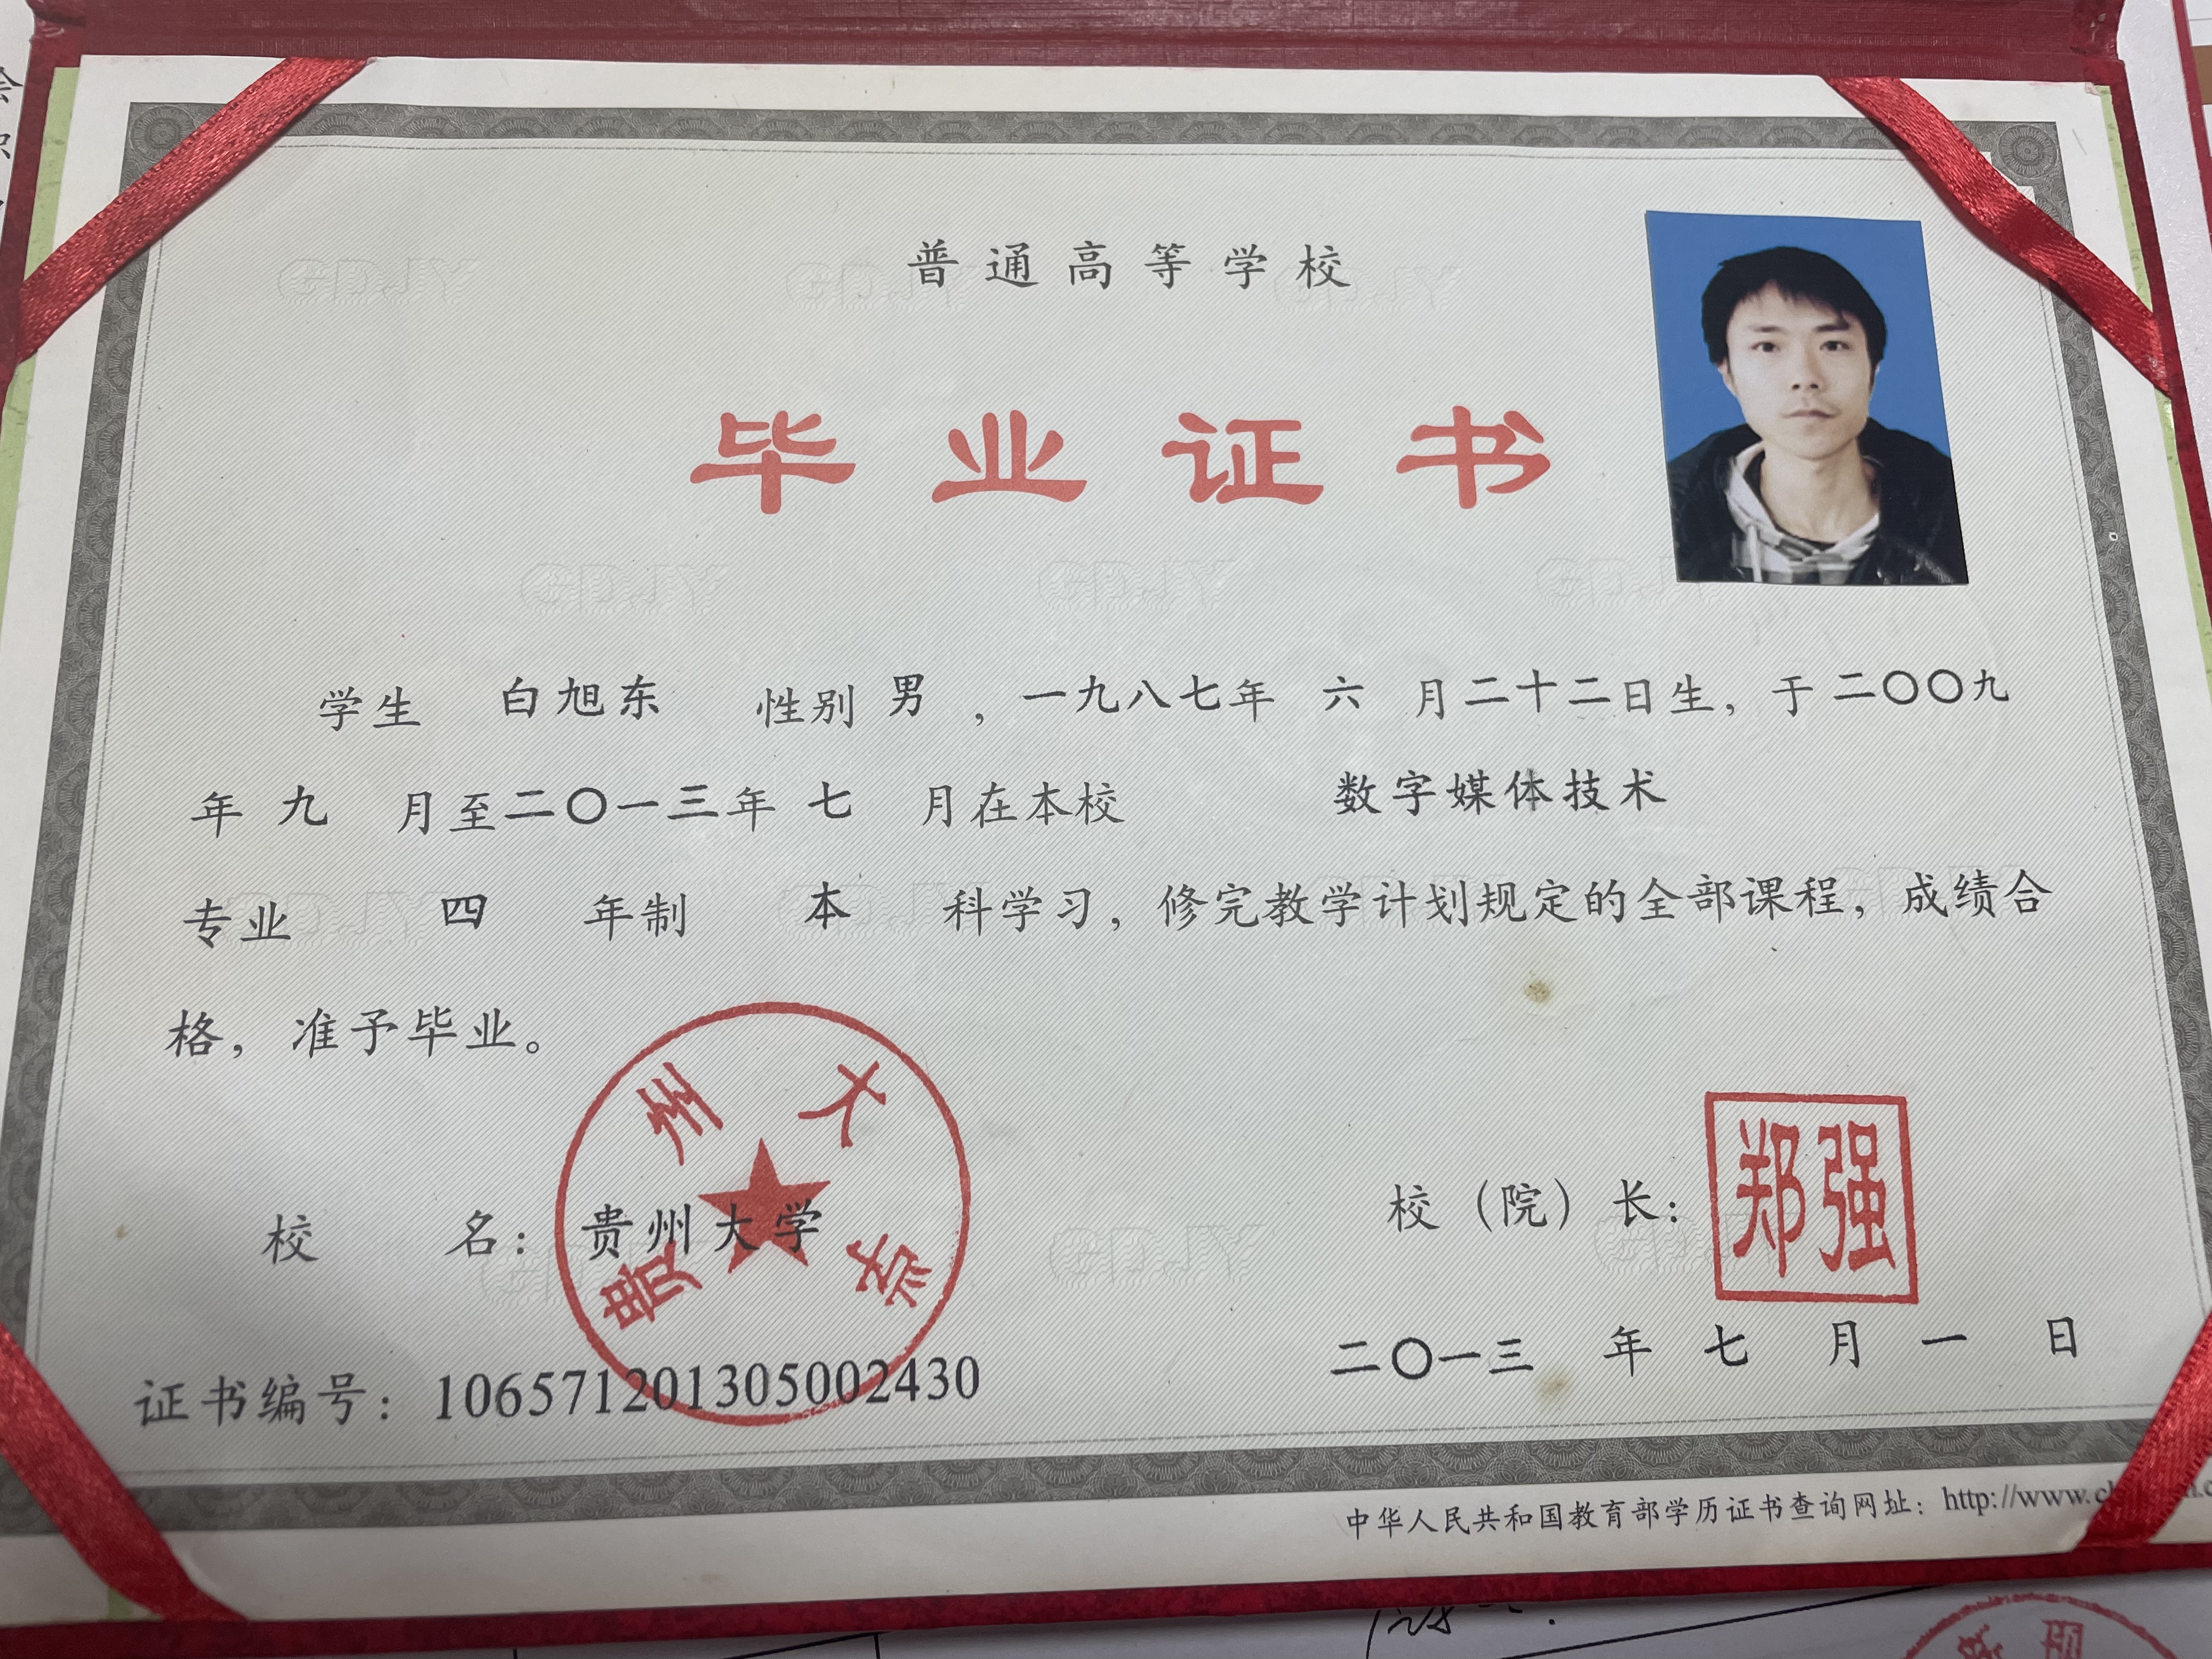 普通高等学校
毕业证书
学生 白旭东 性别 男 ，一九八七年 六 月二十二日生，于二〇〇九
年 九 月至二〇一三年 七 月在本校 数字媒体技术
专业 四 年制 本 科学习，修完教学计划规定的全部课程，成绩合
格，准予毕业。
贵州大学
校 名：贵州大学
校（院）长：郑强
二〇一三 年 七 月 一 日
证书编号：106571201305002430
中华人民共和国教育部学历证书查询网址：http://www.
GDJY GDJY GDJY
GDJY GDJY GDJY